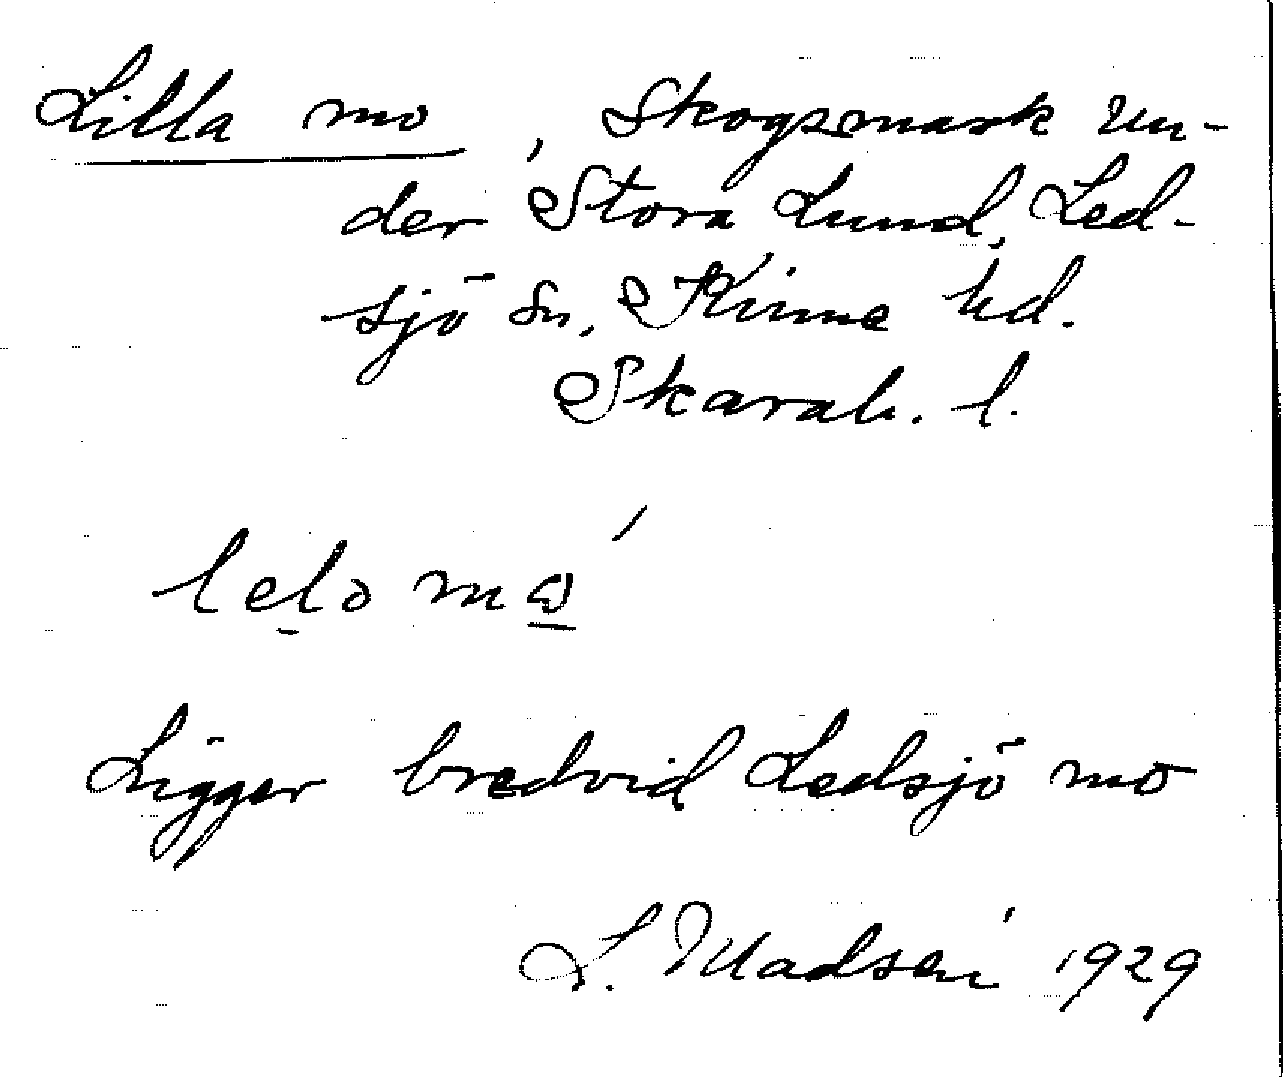 Lilla mo, Skogsmark un-
der Stora Lund, Led-
sjö sn, Kinne hd.
Skarab. l.
lelo
Ligger bredvid Ledsjö mo
L. Madsén 1929